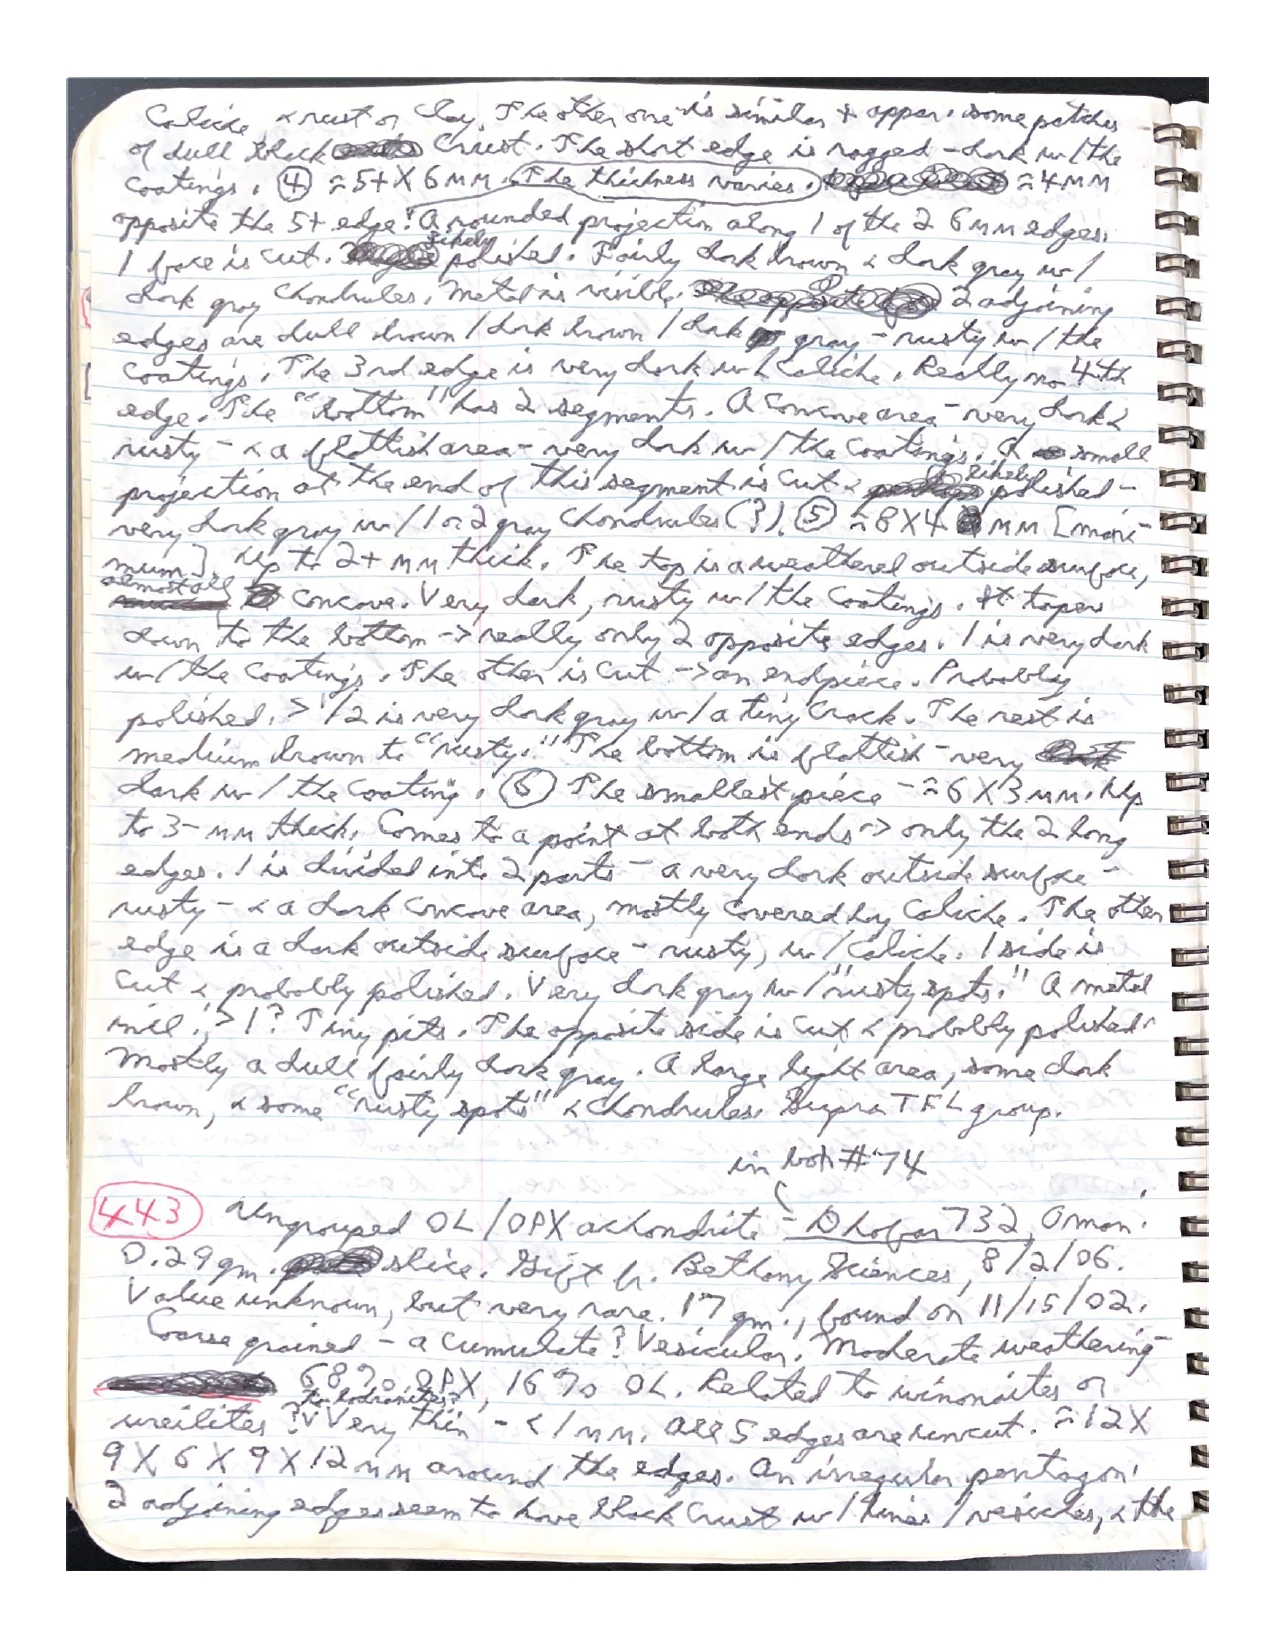 Caliche, & rust or clay. The other one is similar & appar. some patches
of dull black crust. The short edge is ragged - dark w/ the
coatings. ④ ≈ 5+ X 6 mm. The thickness varies. ≈ 4 mm
opposite the 5+ edge. A rounded projection along 1 of the 2 6 mm edges.
1 face is cut. likely polished. Fairly dark brown & dark gray w/
dark gray chondrules. Metal is visible. 2 adjoining
edges are dull brown / dark brown / dark gray - rusty w/ the
coatings. The 3rd edge is very dark w/ caliche. Really no 4th
edge. The "bottom" has 2 segments. A concave area - very dark &
rusty - & a flattish area - very dark w/ the coatings. A small
projection at the end of this segment is cut & likely polished -
very dark gray w/ 1 or 2 gray chondrules (?). ⑤ ≈ 8 X 4 mm [maxi-
mum]. Up to 2+ mm thick. The top is a weathered outside surface,
almost all concave. Very dark, rusty w/ the coatings. It tapers
down to the bottom -> really only 2 opposite edges. 1 is very dark
w/ the coatings. The other is cut -> an endpiece. Probably
polished. > 1/2 is very dark gray w/ a tiny crack. The rest is
medium brown to "rusty." The bottom is flattish - very
dark w/ the coating. ⑥ The smallest piece - ≈ 6 X 3 mm. Up
to 3- mm thick. Comes to a point at both ends -> only the 2 long
edges. 1 is divided into 2 parts - a very dark outside surface -
rusty - & a dark concave area, mostly covered by caliche. The other
edge is a dark outside surface - rusty, w/ caliche. 1 side is
cut & probably polished. Very dark gray w/ "rusty spots." A metal
incl.; > 1? Tiny pits. The opposite side is cut & probably polished -
Mostly a dull fairly dark gray. A large light area, some dark
brown, & some "rusty spots" & chondrules. Supra TFL group.
in bot. #74
443 Ungrouped OL/OPX achondrite - Dhofar 732, Oman.
0.29 gm. slice. Gift fr. Bethany Sciences, 8/2/06.
Value unknown, but very rare. 17 gm., found on 11/15/02.
Coarse grained - a cumulate? Vesicular. Moderate weathering -
68% OPX, 16% OL. Related to winonaites or
ureilites? to lodranites? Very thin - < 1 mm. All 5 edges are uncut. ≈ 12 X
9 X 6 X 9 X 12 mm around the edges. An irregular pentagon.
2 adjoining edges seem to have black crust w/ lines / vesicles, & the